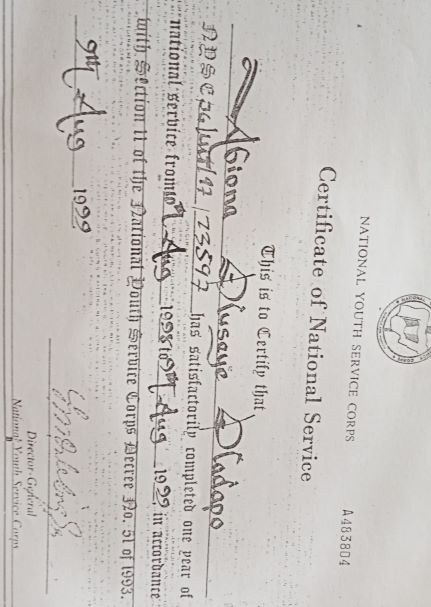 NATIONAL YOUTH SERVICE CORPS
A483804
Certificate of National Service
This is to Certify that
Abiona Olusaye Oladapo
has satisfactorily completed one year of
national service from Aug 1998 to 9th Aug 1999 in accordance
with Section 11 of the National Youth Service Corps Decree No. 51 of 1993.
9th Aug 1999
Director-General
National Youth Service Corps